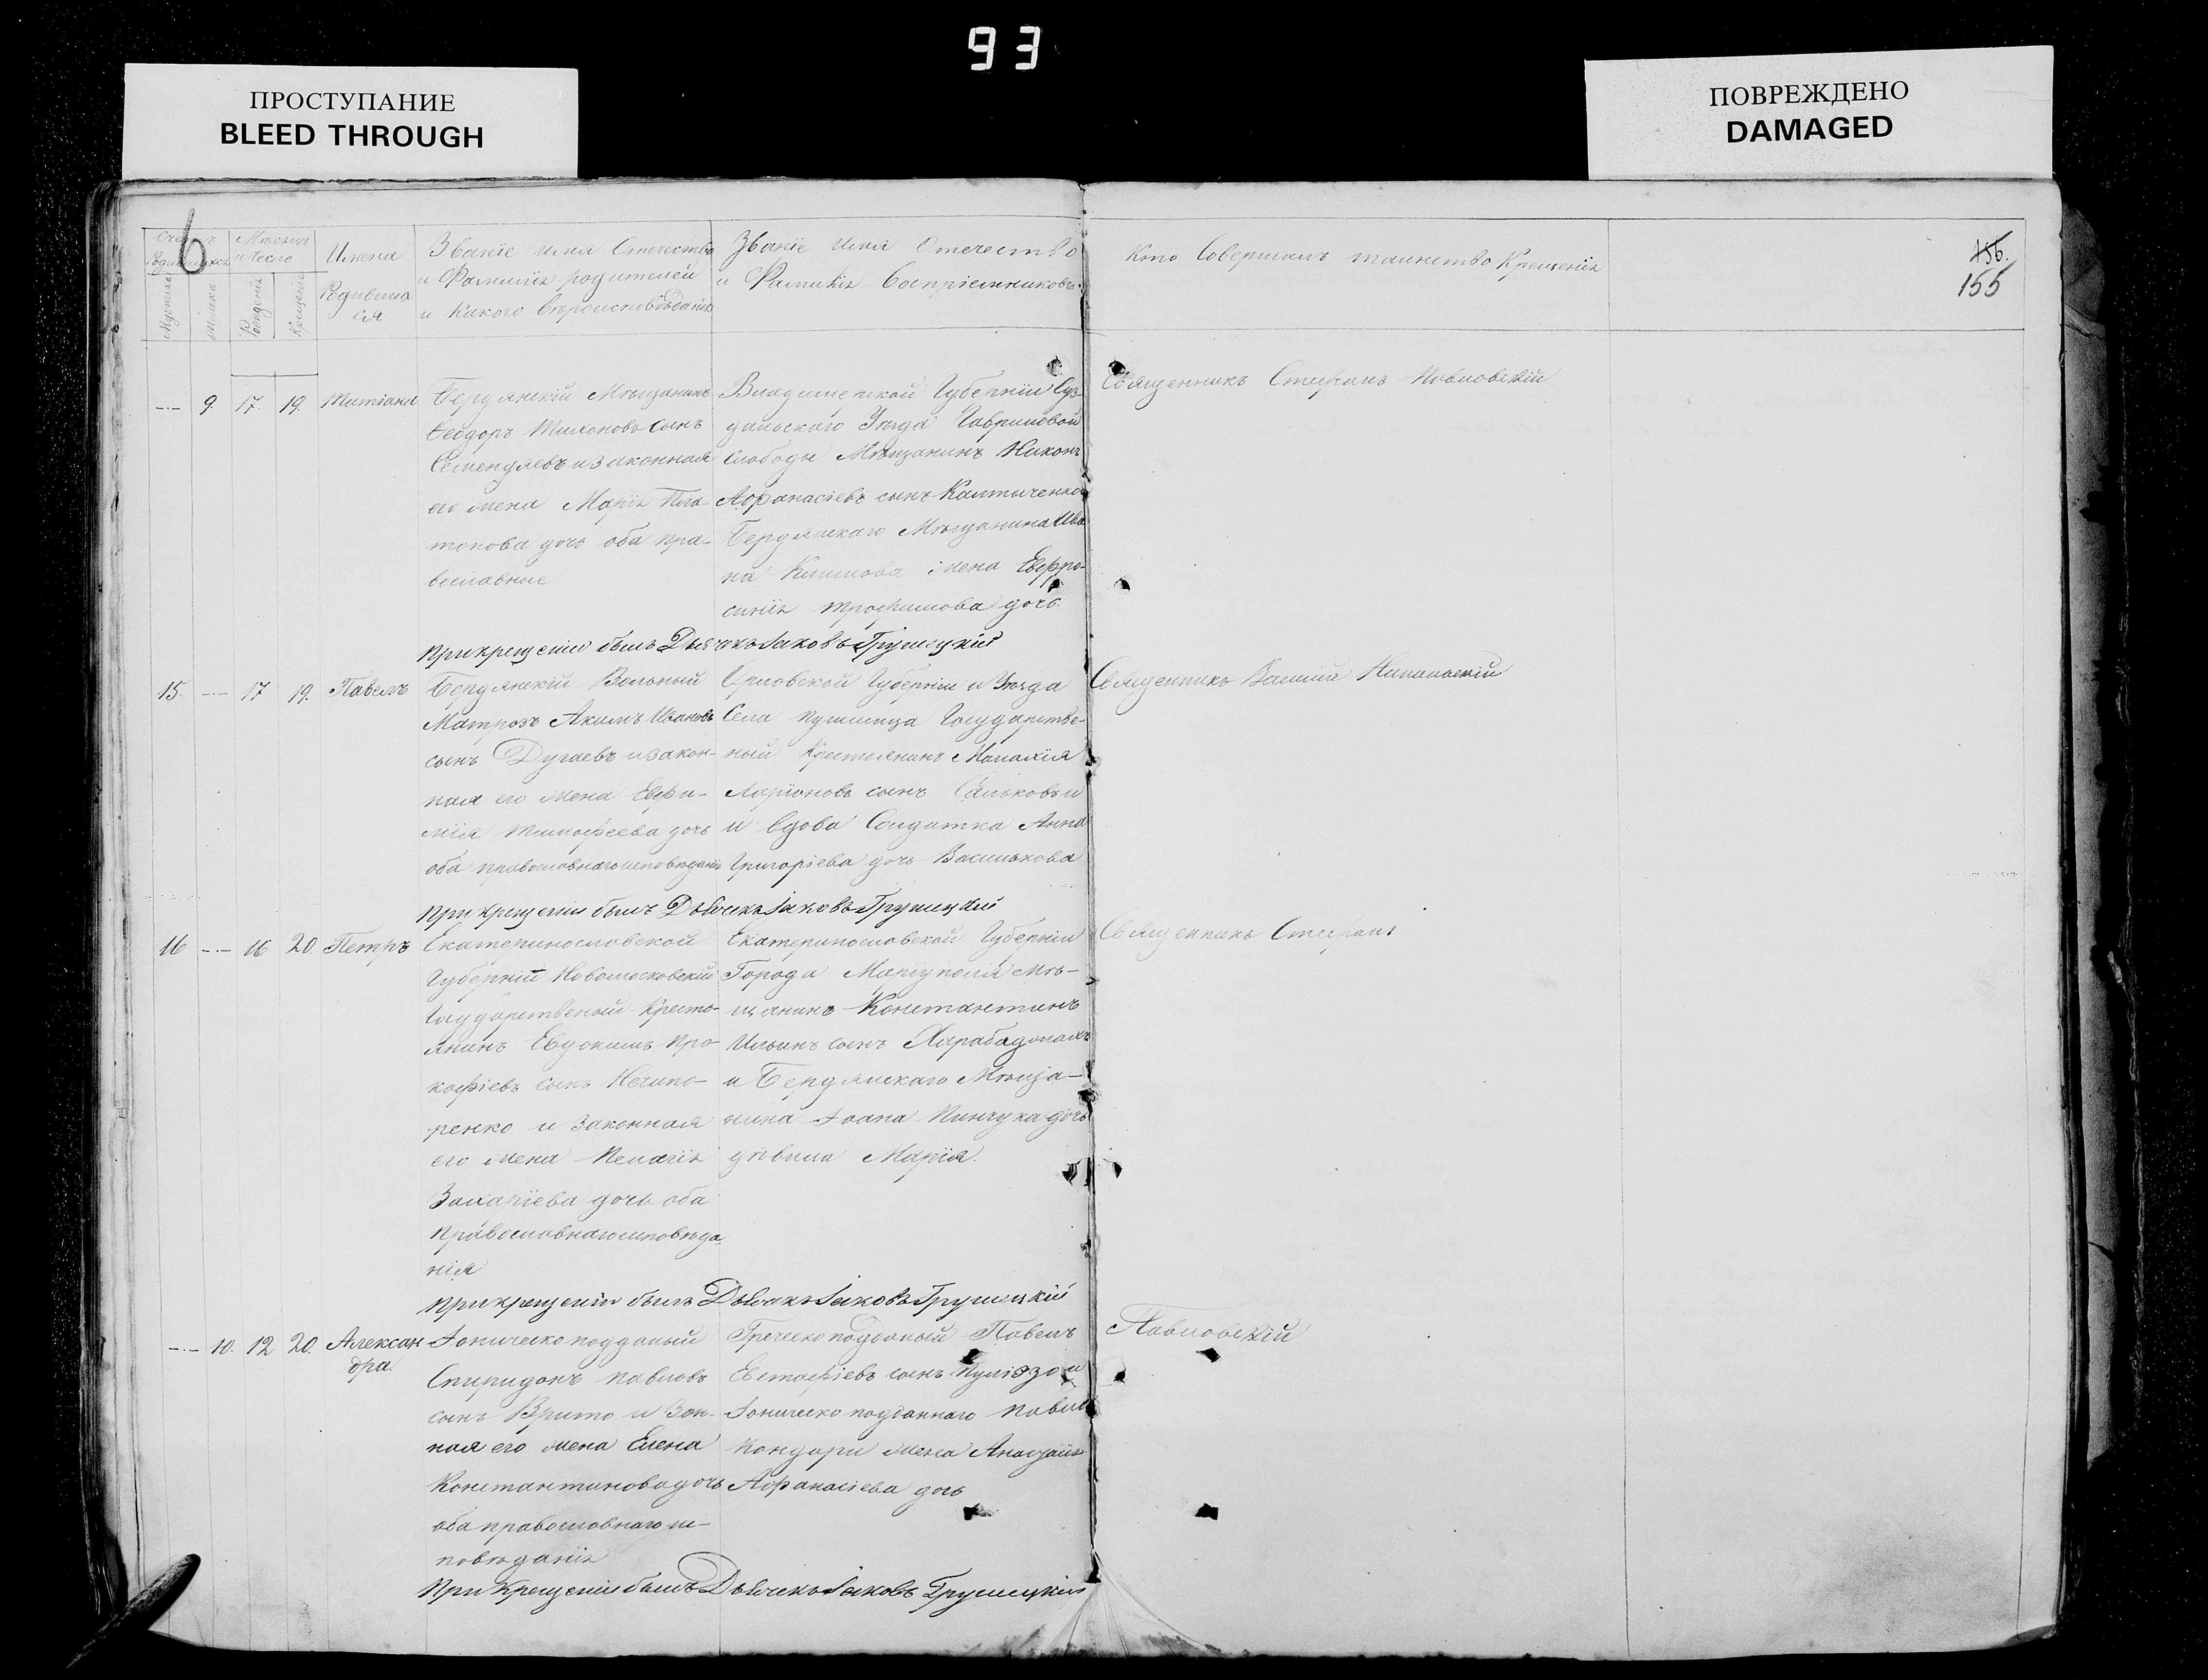 93
ПРОСТУПАНИЕ
BLEED THROUGH
ПОВРЕЖДЕНО
DAMAGED
6
156.
155
Счетъ Родившихся
Мѣсяцъ и Число
Мужеска
Женска
Рожденія
Крещенія
Имена
Родивших
ся
Званіе имя Отечество
и Фамилія родителей
и Какого Вѣроисповѣданія
Званіе имя Отечество
и Фамилія Воспріемниковъ
Кто Совершалъ таинство Крещенія
9. 17. 19. Татіана
Бердянскій Мѣщанинъ
Ѳеодоръ сынъ
и законная
его жена Марія Пла-
тонова дочь оба пра-
вославные
Владимерской Губерніи Суз-
дальского Уѣзда Гавриловой
слободы Мѣщанинъ Никонъ
Афанасіевъ сынъ
Бердянскаго Мѣщанина Ива
на Климова жена Евфро-
синія Трофимова дочь.
Священникъ Стефанъ Павловскій
При крещеніи былъ Дьячокъ Іаковъ Грушецкій
15. 17 19. Павелъ
Бердянскій Вольный
Матрозъ Акимъ Ивановъ
сынъ Дугаевъ и закон-
ная его жена Евфи-
мія Тимофеева дочь
оба православнаго исповѣданія
Орловской Губерніи и Уѣзда
Села Государстве-
ный Крестьянинъ Малахія
Ларіоновъ сынъ
и вдова Солдатка Анна
Григоріева дочь Василькова
Священникъ
При крещеніи былъ Дьячекъ Іаковъ Грушецкій
16 16 20. Петръ
Екатеринославской
Губерніи Новомосковскій
Государственый Кресть-
янинъ Евдокимъ Про-
кофіевъ сынъ Нечипо-
ренко и законная
его жена Пелагія
Захаріева дочь оба
православнаго исповѣда
нія
Екатеринославской Губерніи
Города Маріуполя Мѣ-
щанинъ Константинъ
Ильинъ сынъ
и Бердянскаго Мѣща-
нина Іоана Пинчука дочь
дѣвица Марія.
Священникъ Стефанъ
При крещеніи былъ Дьячекъ Іаковъ Грушецкій
10. 12 20. Алексан
дра
Іоническо подданый
Спиридонъ Павловъ
сынъ и Зон-
ная его жена Елена
Константинова дочь
оба православнаго ис-
повѣданія
Греческо подданый Павелъ
Евстафіевъ сынъ
Іоническо подданнаго Павла
Кондари жена
Афанасіева дочь
Павловскій
При Крещеніи былъ Дьячекъ Іаковъ Грушецкій